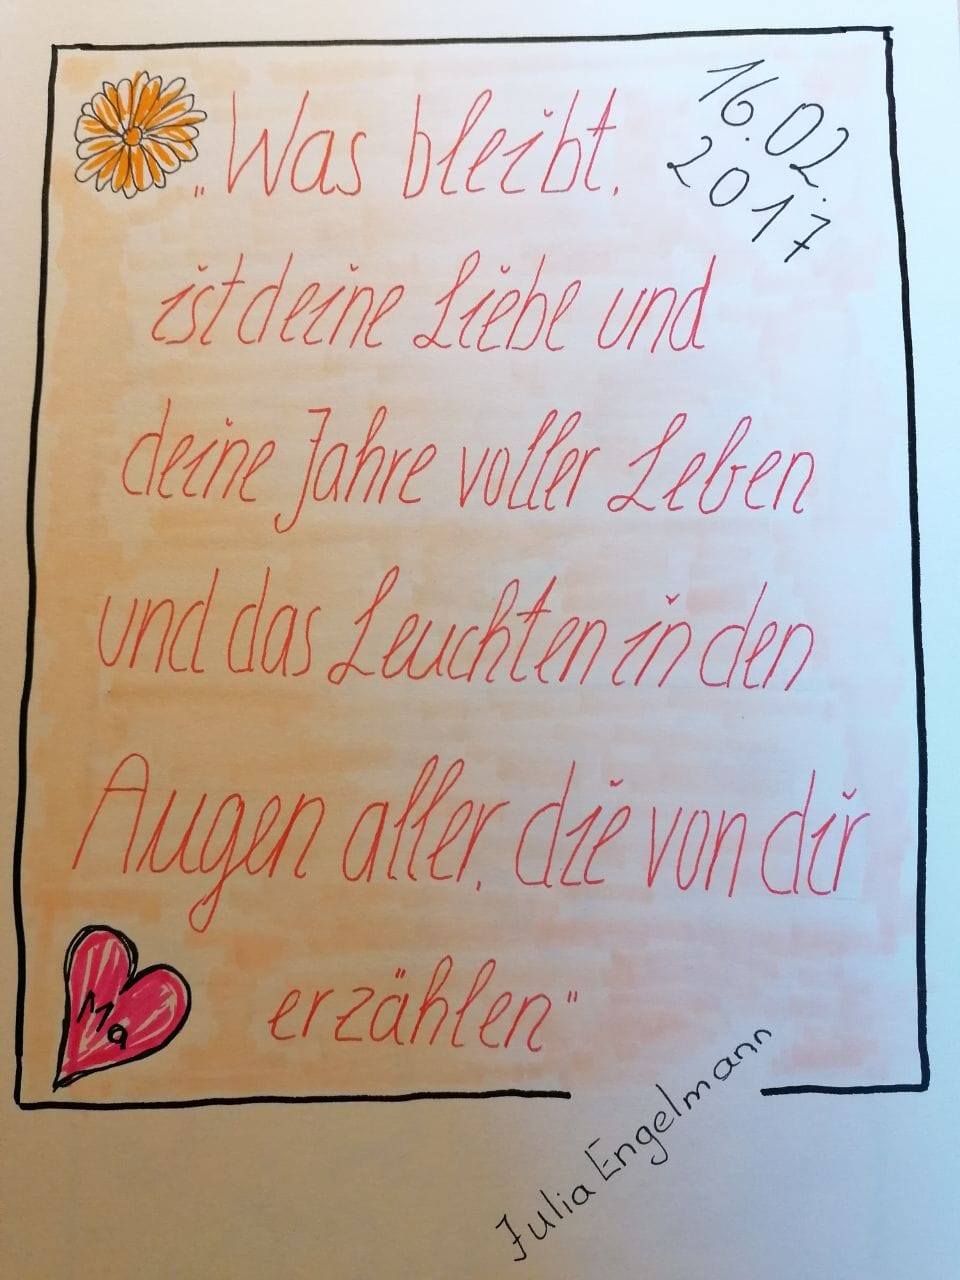 „Was bleibt,
ist deine Liebe und
deine Jahre voller Leben
und das Leuchten in den
Augen aller, die von dir
erzählen"
16.02.
2017
11a
Julia Engelmann